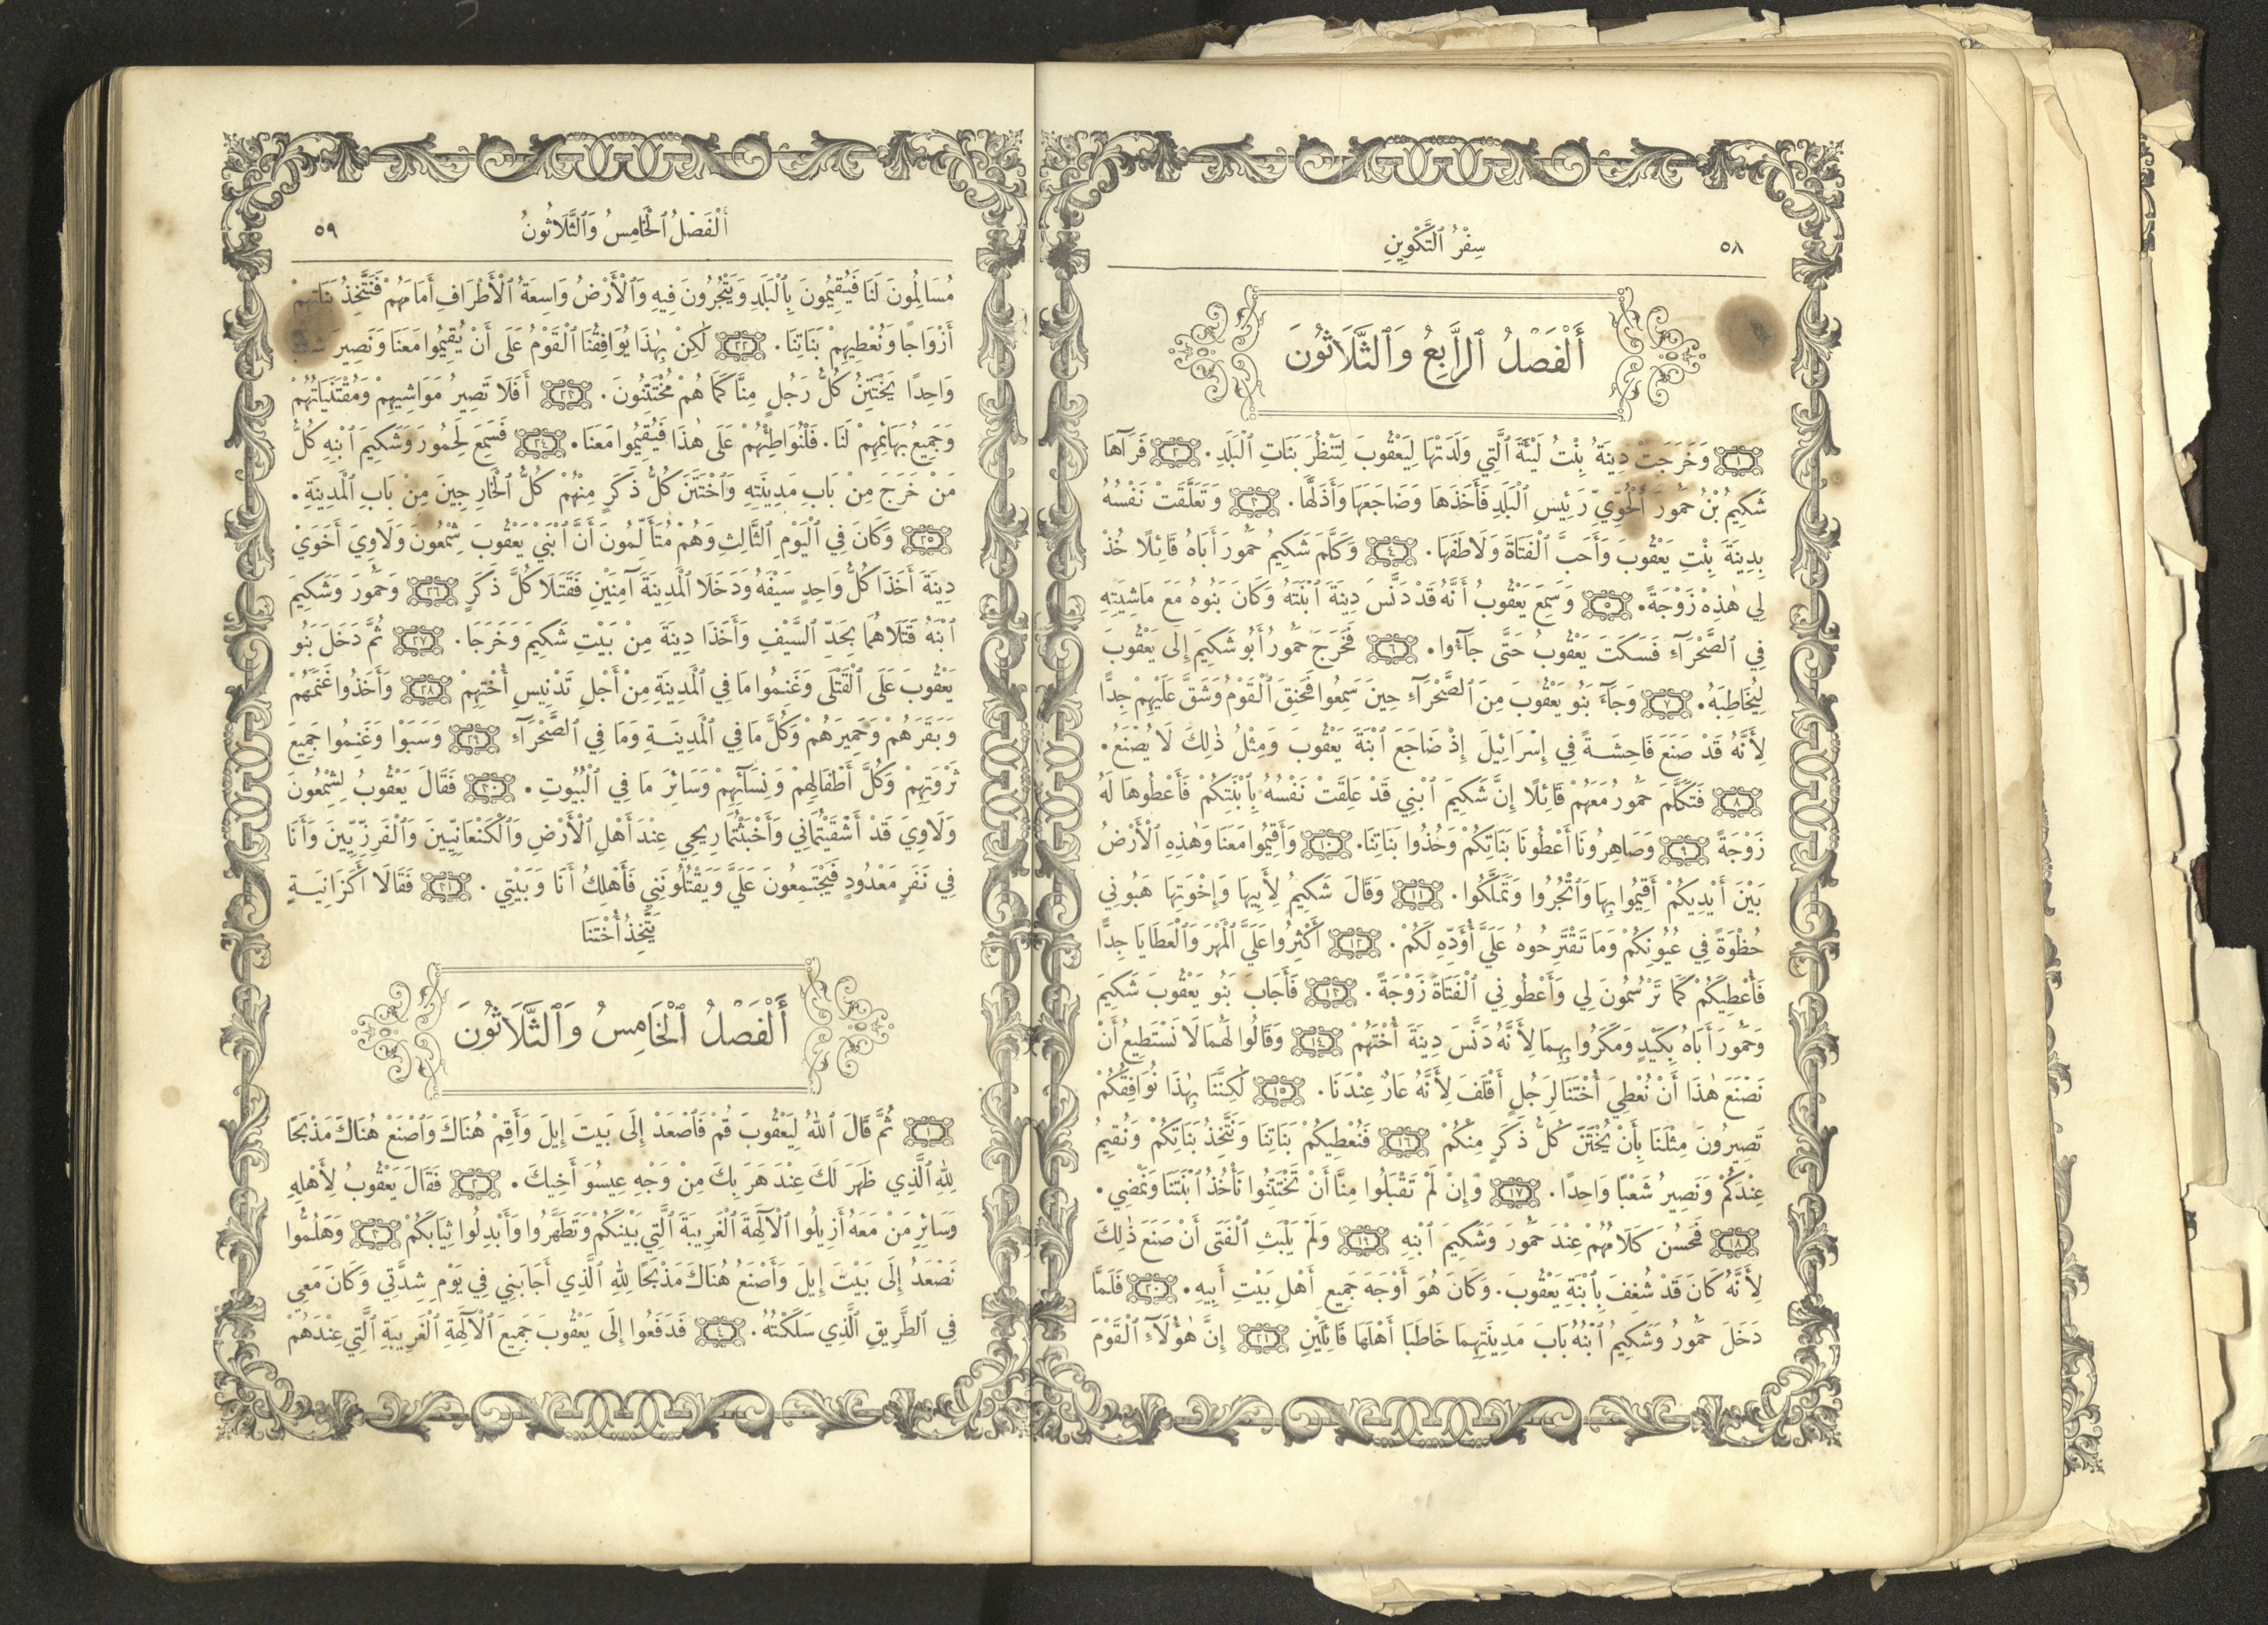 ٥٨
سِفْرُ ٱلتَّكْوِينِ
أَلْفَصْلُ ٱلرَّابِعُ وَٱلثَّلَاثُونَ
١ وَخَرَجَتْ دِينَةُ بِنْتُ لَيْئَةَ ٱلَّتِي وَلَدَتْهَا لِيَعْقُوبَ لِتَنْظُرَ بَنَاتِ ٱلْبَلَدِ. ٢ فَرَآهَا
شَكِيمُ بْنُ حَمُورَ ٱلْحُوِّيِّ رَئِيسِ ٱلْبَلَدِ فَأَخَذَهَا وَضَاجَعَهَا وَأَذَلَّهَا. ٣ وَتَعَلَّقَتْ نَفْسُهُ
بِدِينَةَ بِنْتِ يَعْقُوبَ وَأَحَبَّ ٱلْفَتَاةَ وَلَاطَفَهَا. ٤ وَكَلَّمَ شَكِيمُ حَمُورَ أَبَاهُ قَائِلًا خُذْ
لِي هٰذِهْ زَوْجَةً. ٥ وَسَمِعَ يَعْقُوبُ أَنَّهُ قَدْ دَنَّسَ دِينَةَ ٱبْنَتَهُ وَكَانَ بَنُوهُ مَعَ مَاشِيَتِهِ
فِي ٱلصَّحْرَآءِ فَسَكَتَ يَعْقُوبُ حَتَّى جَآءُوا. ٦ فَخَرَجَ حَمُورُ أَبُو شَكِيمَ إِلَى يَعْقُوبَ
لِيُخَاطِبَهُ. ٧ وَجَآءَ بَنُو يَعْقُوبَ مِنَ ٱلصَّحْرَآءِ حِينَ سَمِعُوا فَحَنِقَ ٱلْقَوْمُ وَشَقَّ عَلَيْهِمْ جِدًّا
لِأَنَّهُ قَدْ صَنَعَ فَاحِشَةً فِي إِسْرَائِيلَ إِذْ ضَاجَعَ ٱبْنَةَ يَعْقُوبَ وَمِثْلُ ذٰلِكَ لَا يُصْنَعُ.
٨ فَتَكَلَّمَ حَمُورُ مَعَهُمْ قَائِلًا إِنَّ شَكِيمَ ٱبْنِي قَدْ عَلِقَتْ نَفْسُهُ بِٱبْنَتِكُمْ فَأَعْطُوهَا لَهُ
زَوْجَةً ٩ وَصَاهِرُونَا أَعْطُونَا بَنَاتِكُمْ وَخُذُوا بَنَاتِنَا. ١٠ وَأَقِيمُوا مَعَنَا وَهٰذِهِ ٱلْأَرْضُ
بَيْنَ أَيْدِيكُمْ أَقِيمُوا بِهَا وَٱتْجُرُوا وَتَمَلَّكُوا. ١١ وَقَالَ شَكِيمُ لِأَبِيهَا وَإِخْوَتِهَا هَبُونِي
حُظْوَةً فِي عُيُونِكُمْ وَمَا تَقْتَرِحُوهُ عَلَيَّ أُؤَدِّهِ لَكُمْ. ١٢ أَكْثِرُوا عَلَيَّ ٱلْمَهْرَ وَٱلْعَطَايَا جِدًّا
فَأُعْطِيَكُمْ كَمَا تَرْسُمُونَ لِي وَأَعْطُونِي ٱلْفَتَاةَ زَوْجَةً. ١٣ فَأَجَابَ بَنُو يَعْقُوبَ شَكِيمَ
وَحَمُورَ أَبَاهُ بِكَيْدٍ وَمَكَرُوا بِهِمَا لِأَنَّهُ دَنَّسَ دِينَةَ أُخْتَهُمْ ١٤ وَقَالُوا لَهُمَا لَا نَسْتَطِيعُ أَنْ
نَصْنَعَ هٰذَا أَنْ نُعْطِيَ أُخْتَنَا لِرَجُلٍ أَقْلَفَ لِأَنَّهُ عَارٌ عِنْدَنَا. ١٥ لٰكِنَّنَا بِهٰذَا نُوَافِقُكُمْ
تَصِيرُونَ مِثْلَنَا بِأَنْ يُخْتَنَ كُلُّ ذَكَرٍ مِنْكُمْ ١٦ فَنُعْطِيكُمْ بَنَاتِنَا وَنَتَّخِذُ بَنَاتِكُمْ وَنُقِيمُ
عِنْدَكُمْ وَنَصِيرُ شَعْبًا وَاحِدًا. ١٧ وَإِنْ لَمْ تَقْبَلُوا مِنَّا أَنْ تَخْتَتِنُوا نَأْخُذُ ٱبْنَتَنَا وَنَمْضِي.
١٨ فَحَسُنَ كَلَامُهُمْ عِنْدَ حَمُورَ وَشَكِيمَ ٱبْنِهِ ١٩ وَلَمْ يَلْبَثِ ٱلْفَتَى أَنْ صَنَعَ ذٰلِكَ
لِأَنَّهُ كَانَ قَدْ شُغِفَ بِٱبْنَةِ يَعْقُوبَ. وَكَانَ هُوَ أَوْجَهَ جَمِيعِ أَهْلِ بَيْتِ أَبِيهِ. ٢٠ فَلَمَّا
دَخَلَ حَمُورُ وَشَكِيمُ ٱبْنُهُ بَابَ مَدِينَتِهِمَا خَاطَبَا أَهْلَهَا قَائِلَيْنِ ٢١ إِنَّ هٰؤُلَآءِ ٱلْقَوْمَ
أَلْفَصْلُ ٱلْخَامِسُ وَٱلثَّلَاثُونُ
٥٩
مُسَالِمُونَ لَنَا فَيُقِيمُونَ بِٱلْبَلَدِ وَيَتْجُرُونَ فِيهِ وَٱلْأَرْضُ وَاسِعَةُ ٱلْأَطْرَافِ أَمَامَهُمْ فَنَتَّخِذُ بَنَاتِهِمْ
أَزْوَاجًا وَنُعْطِيهِمْ بَنَاتِنَا. ٢٢ لٰكِنْ بِهٰذَا يُوَافِقُنَا ٱلْقَوْمُ عَلَى أَنْ يُقِيمُوا مَعَنَا وَنَصِيرَ
وَاحِدًا يَخْتَتِنُ كُلُّ رَجُلٍ مِنَّا كَمَا هُمْ مُخْتَتِنُونَ. ٢٣ أَفَلَا تَصِيرُ مَوَاشِيهِمْ وَمُقْتَنَيَاتُهُمْ
وَجَمِيعُ بَهَائِمِهِمْ لَنَا. فَلْنُوَاطِئْهُمْ عَلَى هٰذَا فَيُقِيمُوا مَعَنَا. ٢٤ فَسَمِعَ لِحَمُورَ وَشَكِيمَ ٱبْنِهِ كُلُّ
مَنْ خَرَجَ مِنْ بَابِ مَدِينَتِهِ وَٱخْتَتَنَ كُلُّ ذَكَرٍ مِنْهُمْ كُلُّ ٱلْخَارِجِينَ مِنْ بَابِ ٱلْمَدِينَةِ.
٢٥ وَكَانَ فِي ٱلْيَوْمِ ٱلثَّالِثِ وَهُمْ مُتَأَلِّمُونَ أَنَّ ٱبْنَيْ يَعْقُوبَ شِمْعُونَ وَلَاوِيَ أَخَوَيْ
دِينَةَ أَخَذَا كُلُّ وَاحِدٍ سَيْفَهُ وَدَخَلَا ٱلْمَدِينَةَ آمِنَيْنِ فَقَتَلَا كُلَّ ذَكَرٍ ٢٦ وَحَمُورَ وَشَكِيمَ
ٱبْنَهُ قَتَلَاهُمَا بِحَدِّ ٱلسَّيْفِ وَأَخَذَا دِينَةَ مِنْ بَيْتِ شَكِيمَ وَخَرَجَا. ٢٧ ثُمَّ دَخَلَ بَنُو
يَعْقُوبَ عَلَى ٱلْقَتْلَى وَغَنِمُوا مَا فِي ٱلْمَدِينَةِ مِنْ أَجْلِ تَدْنِيسِ أُخْتِهِمْ ٢٨ وَأَخَذُوا غَنَمَهُمْ
وَبَقَرَهُمْ وَحَمِيرَهُمْ وَكُلَّ مَا فِي ٱلْمَدِينَةِ وَمَا فِي ٱلصَّحْرَآءِ ٢٩ وَسَبَوْا وَغَنِمُوا جَمِيعَ
ثَرْوَتِهِمْ وَكُلَّ أَطْفَالِهِمْ وَنِسَآئِهِمْ وَسَائِرَ مَا فِي ٱلْبُيُوتِ. ٣٠ فَقَالَ يَعْقُوبُ لِشِمْعُونَ
وَلَاوِيَ قَدْ أَشْقَيْتُمَانِي وَأَخْبَثْتُمَا رِيحِي عِنْدَ أَهْلِ ٱلْأَرْضِ وَٱلْكَنْعَانِيِّينَ وَٱلْفَرِزِّيِّينَ وَأَنَا
فِي نَفَرٍ مَعْدُودٍ فَيَجْتَمِعُونَ عَلَيَّ وَيَقْتُلُونَنِي فَأَهْلِكُ أَنَا وَبَيْتِي. ٣١ فَقَالَا أَكَزَانِيَةٍ
يَتَّخِذُ أُخْتَنَا
أَلْفَصْلُ ٱلْخَامِسُ وَٱلثَّلَاثُونَ
١ ثُمَّ قَالَ ٱللهُ لِيَعْقُوبَ قُمْ فَٱصْعَدْ إِلَى بَيْتَ إِيلَ وَأَقِمْ هُنَاكَ وَٱصْنَعْ هُنَاكَ مَذْبَحًا
لِلهِ ٱلَّذِي ظَهَرَ لَكَ عِنْدَ هَرَبِكَ مِنْ وَجْهِ عِيسُوَ أَخِيكَ. ٢ فَقَالَ يَعْقُوبُ لِأَهْلِهِ
وَسَائِرِ مَنْ مَعَهُ أَزِيلُوا ٱلْآلِهَةَ ٱلْغَرِيبَةَ ٱلَّتِي بَيْنَكُمْ وَتَطَهَّرُوا وَأَبْدِلُوا ثِيَابَكُمْ ٣ وَهَلُمُّوا
نَصْعَدُ إِلَى بَيْتَ إِيلَ وَأَصْنَعُ هُنَاكَ مَذْبَحًا لِلهِ ٱلَّذِي أَجَابَنِي فِي يَوْمِ شِدَّتِي وَكَانَ مَعِي
فِي ٱلطَّرِيقِ ٱلَّذِي سَلَكْتُهُ. ٤ فَدَفَعُوا إِلَى يَعْقُوبَ جَمِيعَ ٱلْآلِهَةِ ٱلْغَرِيبَةِ ٱلَّتِي عِنْدَهُمْ